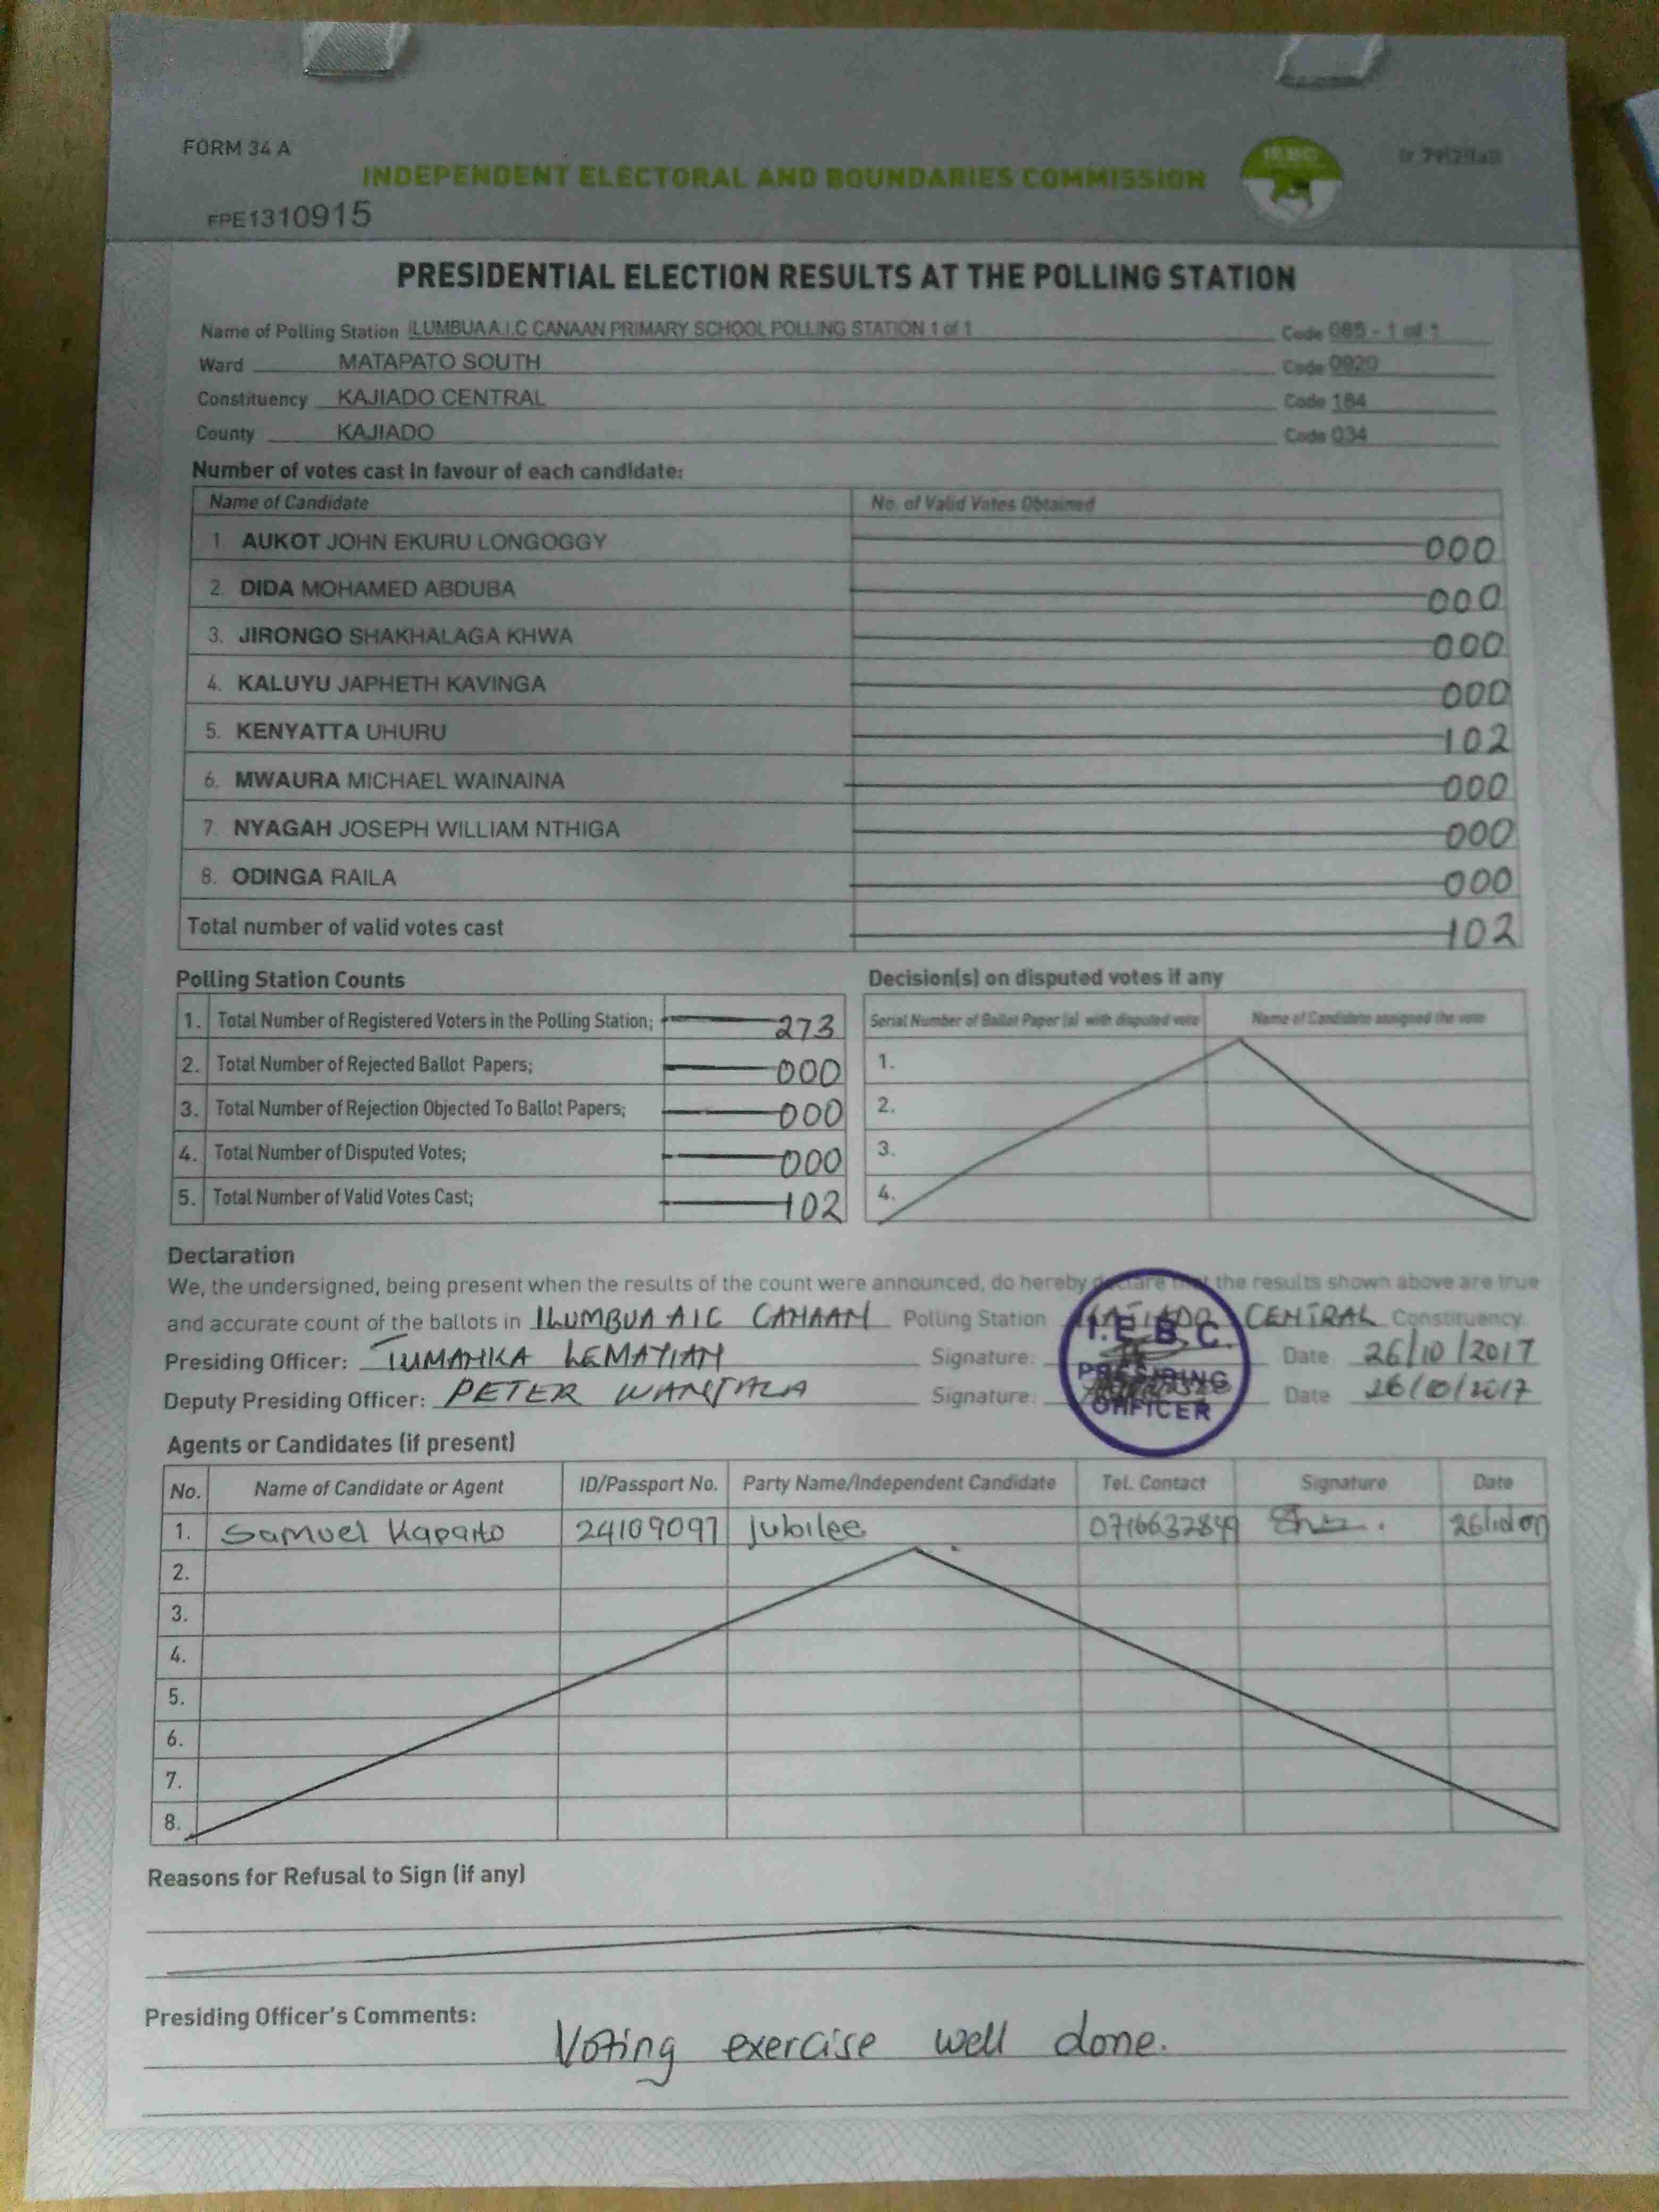 FORM 34 A
INDEPENDENT ELECTORAL AND BOUNDARIES COMMISSION
FPE1310915
PRESIDENTIAL ELECTION RESULTS AT THE POLLING STATION
Name of Polling Station ILUMBUA A.I.C CANAAN PRIMARY SCHOOL POLLING STATION 1 of 1 Code 085 - 1 of 1
Ward MATAPATO SOUTH Code 0920
Constituency KAJIADO CENTRAL Code 184
County KAJIADO Code 034
Number of votes cast in favour of each candidate:
Name of Candidate No. of Valid Votes Obtained
1. AUKOT JOHN EKURU LONGOGGY 000
2. DIDA MOHAMED ABDUBA 000
3. JIRONGO SHAKHALAGA KHWA 000
4. KALUYU JAPHETH KAVINGA 000
5. KENYATTA UHURU 102
6. MWAURA MICHAEL WAINAINA 000
7. NYAGAH JOSEPH WILLIAM NTHIGA 000
8. ODINGA RAILA 000
Total number of valid votes cast 102
Polling Station Counts
1. Total Number of Registered Voters in the Polling Station; 273
2. Total Number of Rejected Ballot Papers; 000
3. Total Number of Rejection Objected To Ballot Papers; 000
4. Total Number of Disputed Votes; 000
5. Total Number of Valid Votes Cast; 102
Decision(s) on disputed votes if any
Serial Number of Ballot Paper (s) with disputed vote Name of Candidate assigned the vote
1.
2.
3.
4.
Declaration
We, the undersigned, being present when the results of the count were announced, do hereby declare that the results shown above are true
and accurate count of the ballots in ILUMBUA AIC CANAAN Polling Station KAJIADO CENTRAL Constituency
Presiding Officer: TUMANKA LEMAYIAN Signature: Date 26/10/2017
Deputy Presiding Officer: PETER Signature: Date 26/10/2017
I.E.B.C.
PRESIDING
OFFICER
Agents or Candidates (if present)
No. Name of Candidate or Agent ID/Passport No. Party Name/Independent Candidate Tel. Contact Signature Date
1. Samuel Kapaito 24109097 jubilee 0716632849
2.
3.
4.
5.
6.
7.
8.
Reasons for Refusal to Sign (if any)
Presiding Officer's Comments:
Voting exercise well done.